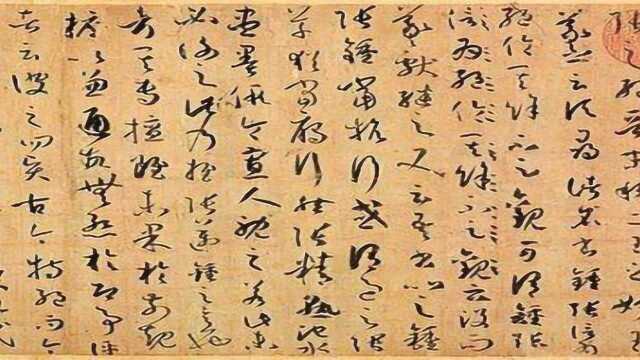 張之絕晉末稱二王之妙
羲之云頃尋諸名書鍾張信為
絕倫其餘不足觀可謂鍾張
信為絕倫其餘不足觀云沒而
羲獻繼之又云吾書比之鍾
張鍾當抗行或謂過之張
草猶當雁行然張精熟池水
盡墨假令寡人耽之若此未
必謝之此乃推張邁鍾之意也
考其專擅雖未果於前規
摭以兼通故無慚於即事評
者云彼之四賢古今特絕而今